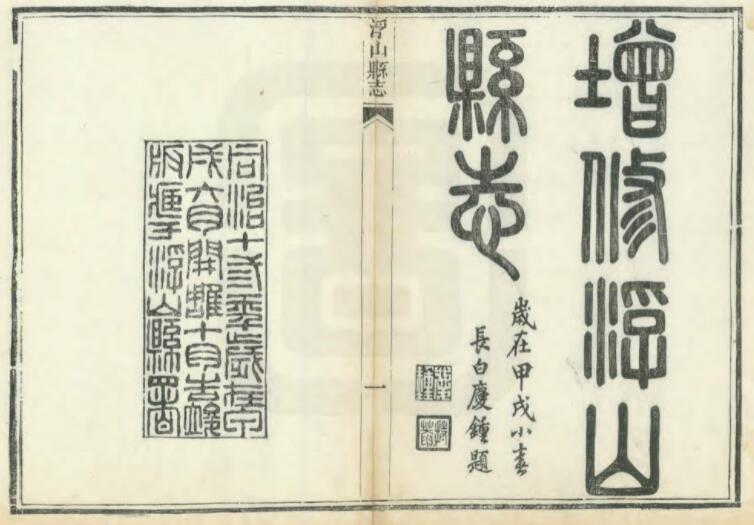 增修浮山
縣志
歲在甲戌小春
長白慶鍾題
浮山縣志
一
同治十弎年歲在甲
戌六月開雕十月告竣
版于浮山縣署